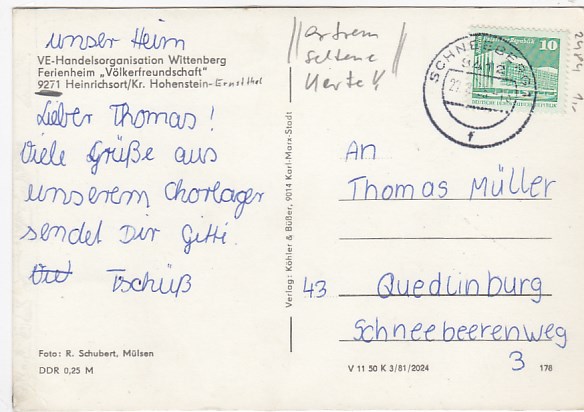 unser Heim
VE-Handelsorganisation Wittenberg
Ferienheim „Völkerfreundschaft"
9271 Heinrichsort/Kr. Hohenstein-Ernstthal
Lieber Thomas!
Viele Grüße aus
unserem Chorlager
sendet Dir Gitti.
Tschüß
Foto: R. Schubert, Mülsen
DDR 0,25 M
Verlag: Köhler & Büßer, 9014 Karl-Marx-Stadt
extrem
seltene
Karte!!
10
SCHNEEBERG
9412
f
An
Thomas Müller
43 Quedlinburg
Schneebeerenweg
3
V 11 50 K 3/81/2024
178